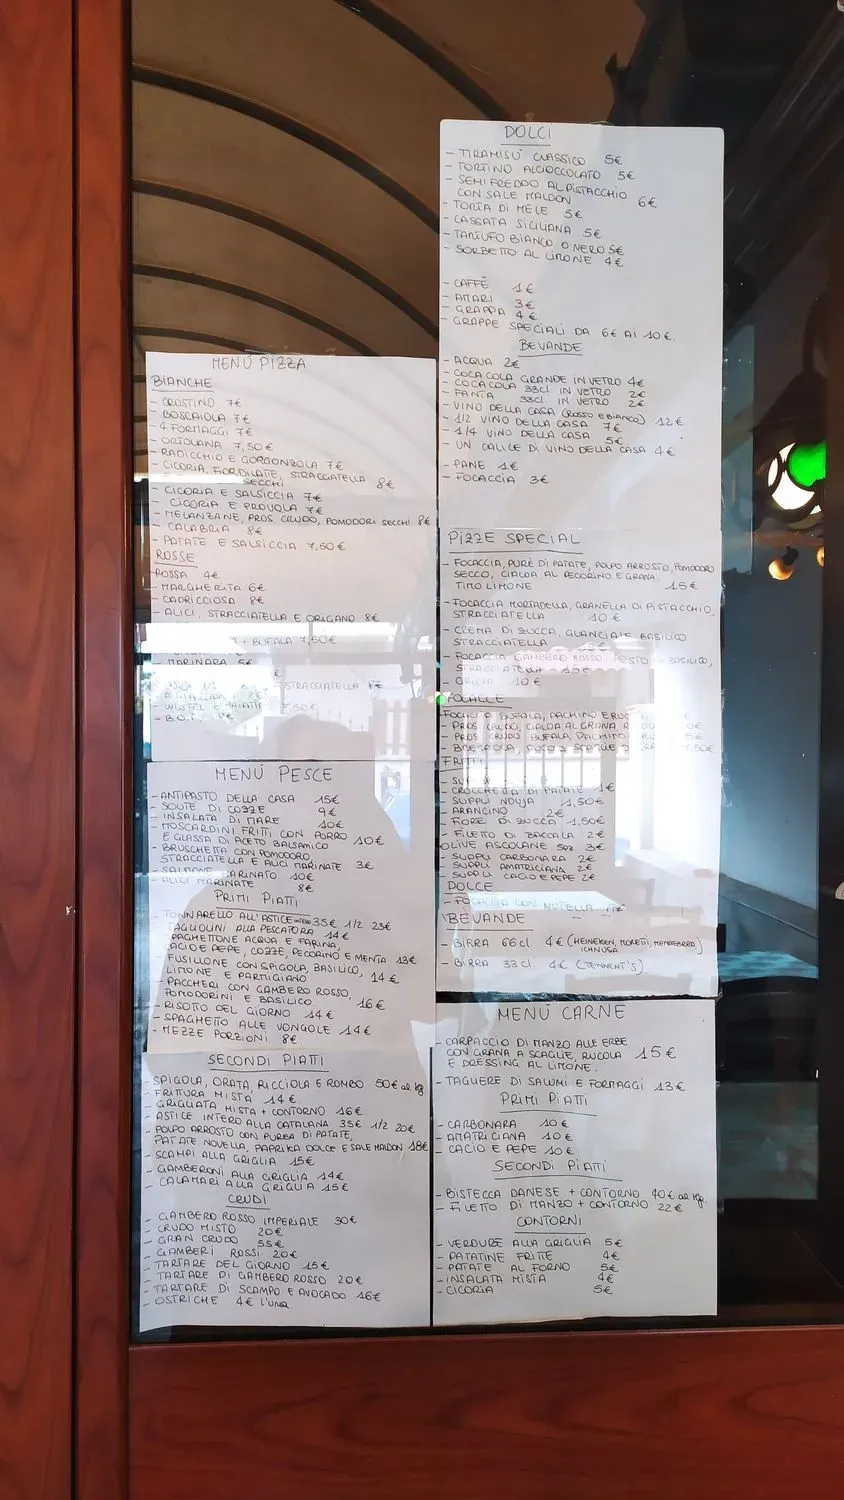 DOLCI
- TIRAMISÙ CLASSICO 5€
- TORTINO ALCIOCCOLATO 5€
- SEMIFREDDO AL PISTACCHIO
CON SALE MALDON 6€
- TORTA DI MELE 5€
- CASSATA SICILIANA 5€
- TARTUFO BIANCO O NERO 5€
- SORBETTO AL LIMONE 4€
- CAFFÈ 1€
- AMARI 3€
- GRAPPA 4€
- GRAPPE SPECIALI DA 6€ AI 10€.
BEVANDE
- ACQUA 2€
- COCA COLA GRANDE IN VETRO 4€
- COCACOLA 33cl. IN VETRO 2€
- FANTA 33cl. IN VETRO 2€
- VINO DELLA CASA (ROSSO E BIANCO) 12€
- 1/2 VINO DELLA CASA 7€
- 1/4 VINO DELLA CASA 5€
- UN CALICE DI VINO DELLA CASA 4€
- PANE 1€
- FOCACCIA 3€
MENÚ PIZZA
BIANCHE
- CROSTINO 7€
- BOSCAIOLA 7€
- 4 FORMAGGI 7€
- ORTOLANA 7,50€
- RADICCHIO E GORGONZOLA 7€
- CICORIA, FIORDILATTE, STRACCIATELLA
SECCHI 8€
- CICORIA E SALSICCIA 7€
- CICORIA E PROVOLA 7€
- MELANZANE, PROS CRUDO, POMODORI SECCHI 8€
- CALABRIA 8€
- PATATE E SALSICCIA 7,50€
ROSSE
ROSSA 4€
- MARGHERITA 6€
- CAPRICCIOSA 8€
- ALICI, STRACCIATELLA E ORIGANO 8€
+ BUFALA 7,50€
- MARINARA 5€
STRACCIATELLA
- WUSTEL E 7,50€
PIZZE SPECIAL
- FOCACCIA, PURÈ DI PATATE, POLPO ARROSTO, POMODORO
SECCO, CIALDA AL PECORINO E GRANA.
TIMO LIMONE 15€
- FOCACCIA MORTADELLA, GRANELLA DI PISTACCHIO,
STRACCIATELLA 10€
- CREMA DI ZUCCA, GUANCIALE BASILICO
STRACCIATELLA
- FOCACCIA GAMBERO ROSSO PESTO BASILICO,
STRACCIATELLA 15€
- GRICIA 10€
FOCACCE
FOCACCIA BUFALA, PACHINO E
- PROS CRUDO, CIALDA AL GRANA,
- PROS CRUDO BUFALA, PACHINO
FRITTI
- CROCCHETTA DI PATATE 1€
- SUPPLI NDUJA 1,50€
- ARANCINO 2€
- FIORE DI ZUCCA 1,50€
- FILETTO DI BACCALA 2€
OLIVE ASCOLANE 5pz 3€
- SUPPLI CARBONARA 2€
- SUPPLI AMATRICIANA 2€
- SUPPLI CACIO E PEPE 2€
DOLCE
- FOCACCIA CON NUTELLA
BEVANDE
- BIRRA 66 cl. 4€ (HEINEKEN, MORETTI, MENABREA)
ICHNUSA
- BIRRA 33 cl. 4€ (TENNENT'S).
MENÚ PESCE
- ANTIPASTO DELLA CASA 15€
- SOUTE DI COZZE 9€
- INSALATA DI MARE 10€
- MOSCARDINI FRITTI CON PORRO
E GLASSA DI ACETO BALSAMICO 10€
- BRUSCHETTA CON POMODORO,
STRACCIATELLA E ALICI MARINATE 3€
- SALMONE MARINATO 10€
- ALICI MARINATE 8€
PRIMI PIATTI
- TONNARELLO ALL'ASTICE INTERO 35€ 1/2 23€
- TAGLIOLINI ALLA PESCATORA 14€
- SPAGHETTONE ACQUA E FARINA,
CACIO E PEPE, COZZE, PECORINO E MENTA 13€
- FUSILLONE CON SPIGOLA, BASILICO,
LIMONE E PARMIGIANO 14€
- PACCHERI CON GAMBERO ROSSO,
POMODORINI E BASILICO 16€
- RISOTTO DEL GIORNO 14€
- SPAGHETTO ALLE VONGOLE 14€
- MEZZE PORZIONI 8€
SECONDI PIATTI
- SPIGOLA, ORATA, RICCIOLA E ROMBO 50€ al kg
- FRITTURA MISTA 14€
- GRIGLIATA MISTA + CONTORNO 16€
- ASTICE INTERO ALLA CATALANA 35€ 1/2 20€
- POLPO ARROSTO CON PUREA DI PATATE,
PATATE NOVELLA, PAPRIKA DOLCE E SALE MALDON 18€
- SCAMPI ALLA GRIGLIA 15€
- GAMBERONI ALLA GRIGLIA 14€
- CALAMARI ALLA GRIGLIA 15€
CRUDI
- GAMBERO ROSSO IMPERIALE 30€
- CRUDO MISTO 20€
- GRAN CRUDO 55€
- GAMBERI ROSSI 20€
- TARTARE DEL GIORNO 15€
- TARTARE DI GAMBERO ROSSO 20€
- TARTARE DI SCAMPO E AVOCADO 16€
- OSTRICHE 4€ L'UNA
MENÚ CARNE
- CARPACCIO DI MANZO ALLE ERBE
CON GRANA A SCAGLIE, RUCOLA 15€
E DRESSING AL LIMONE.
- TAGLIERE DI SALUMI E FORMAGGI 13€
PRIMI PIATTI
- CARBONARA 10€
- AMATRICIANA 10€
- CACIO E PEPE 10€
SECONDI PIATTI
- BISTECCA DANESE + CONTORNO 40€ al kg
- FILETTO DI MANZO + CONTORNO 22€
CONTORNI
- VERDURE ALLA GRIGLIA 5€
- PATATINE FRITTE 4€
- PATATE AL FORNO 5€
- INSALATA MISTA 4€
- CICORIA 5€